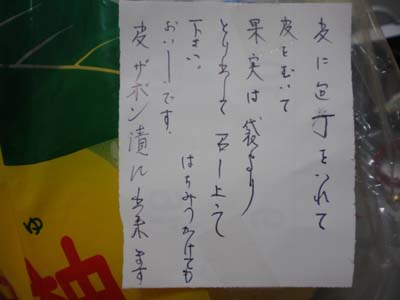 皮に包丁をいれて
皮をむいて
果実は袋より
とり出して 召し上って
下さい。 はちみつかけても
おいしーです。
皮ザボン漬に出来ます
ゆ